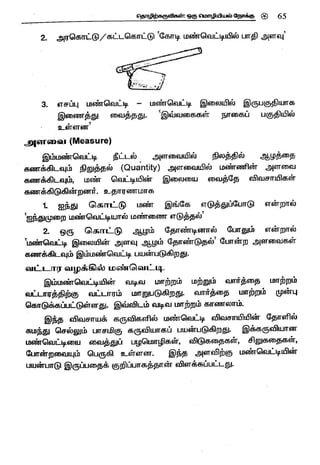 தொழிற்கருவிகள்: ஒரு மொழியியல் நோக்கு ❀ 65
2. அரகொட்டு/கட்டகொட்டு 'கோடி மண்வெட்டியில் பாதி அளவு'
3. எசப்பு மண்வெட்டி – மண்வெட்டி இலையில் இருபகுதியாக
இணைத்து வைத்தது. 'இவ்வகைகள் நாகைப் பகுதியில்
உள்ளன'
அளவை (Measure)
இம்மண்வெட்டி நீட்டல் அளவையில் நிலத்தில் ஆழத்தை
கணக்கிடவும் நிறுத்தல் (Quantity) அளவையில் மண்ணின் அளவை
கணக்கிடவும், மண் வெட்டியின் இலையை வைத்தே விவசாயிகள்
கணக்கிடுகின்றனர். உதாரணமாக
1. ஐந்து கொட்டு மண் இங்கே எடுத்துப்போடு என்றால்
'ஐந்துமுறை மண்வெட்டியால் மண்ணை எடுத்தல்'
2. ஒரு கொட்டு ஆழம் தோண்டினால் போதும் என்றால்
'மண்வெட்டி இலையின் அளவு ஆழம் தோண்டுதல்' போன்ற அளவைகள்
கணக்கிடவும் இம்மண்வெட்டி பயன்படுகிறது.
வட்டார வழக்கில் மண்வெட்டி
இம்மண்வெட்டியின் வடிவ மாற்றம் மற்றும் வார்த்தை மாற்றம்
வட்டாரத்திற்கு வட்டாரம் மாறுபடுகிறது. வார்த்தை மாற்றம் முன்பு
கொடுக்கப்பட்டுள்ளது. இவ்விடம் வடிவ மாற்றம் காணலாம்.
இந்த விவசாயக் கருவிகளில் மண்வெட்டி விவசாயியின் தோளில்
சுமந்து செல்லும் பாசமிகு கருவியாகப் பயன்படுகிறது. இக்கருவியான
மண்வெட்டியை வைத்துப் பழமொழிகள், விடுகதைகள், சிறுகதைகள்,
போன்றவையும் பெருகி உள்ளன. இந்த அளவிற்கு மண்வெட்டியின்
பயன்பாடு இருப்பதைக் குறிப்பாகத்தான் விளக்கப்பட்டது.